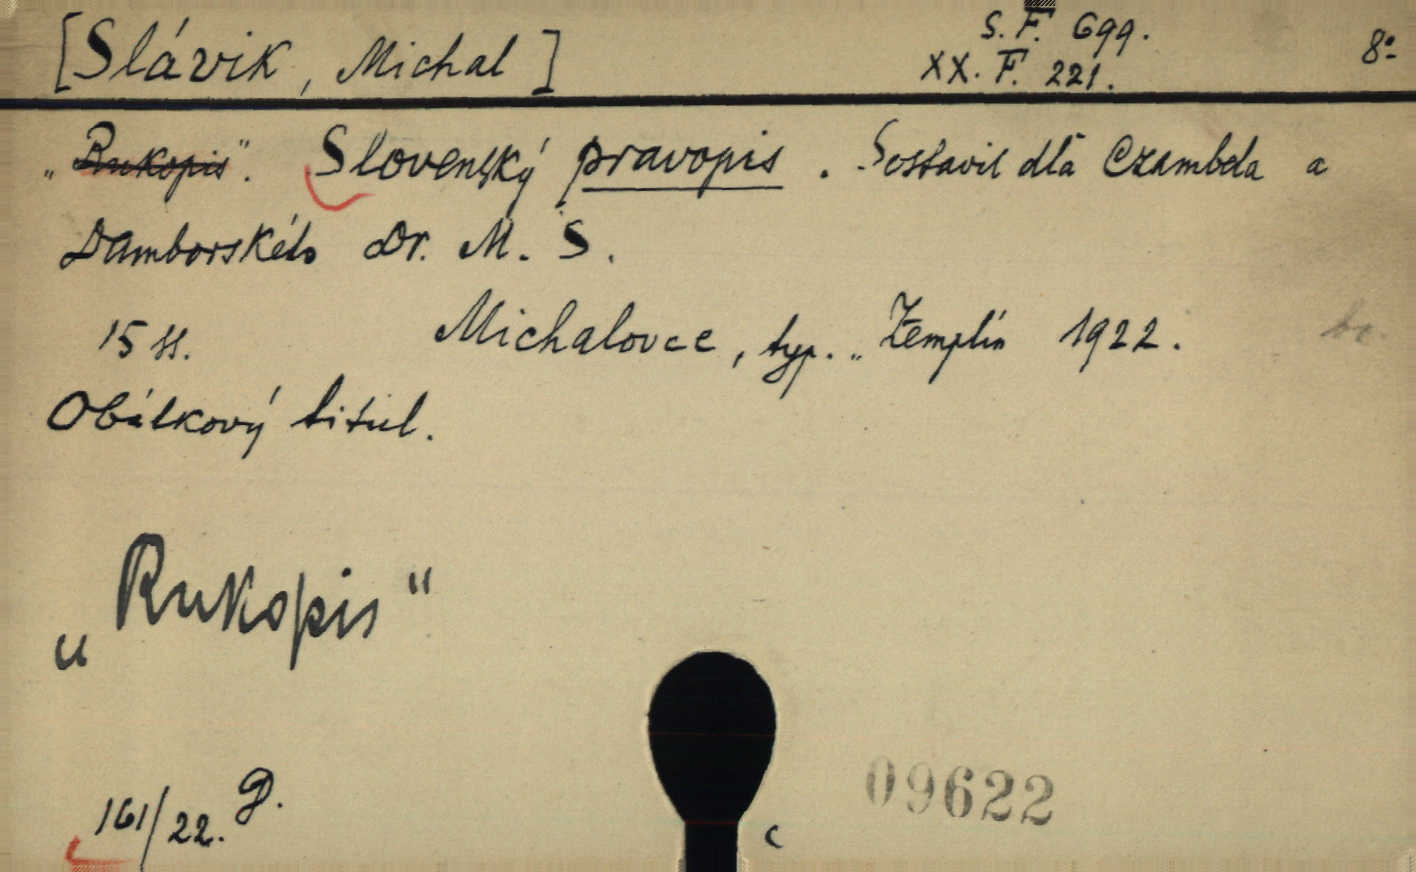 [Slávik, Michal]
S. F. 699.
XX. F. 221.
8°
„Rukopis". Slovenský pravopis. Sostavil dľa Czambela a
Damborského Dr. M. S.
15 ss. Michalovce, typ. „Zemplín 1922. br.
Obálkový titul.
„Rukopis"
161/22. D.
09622
c